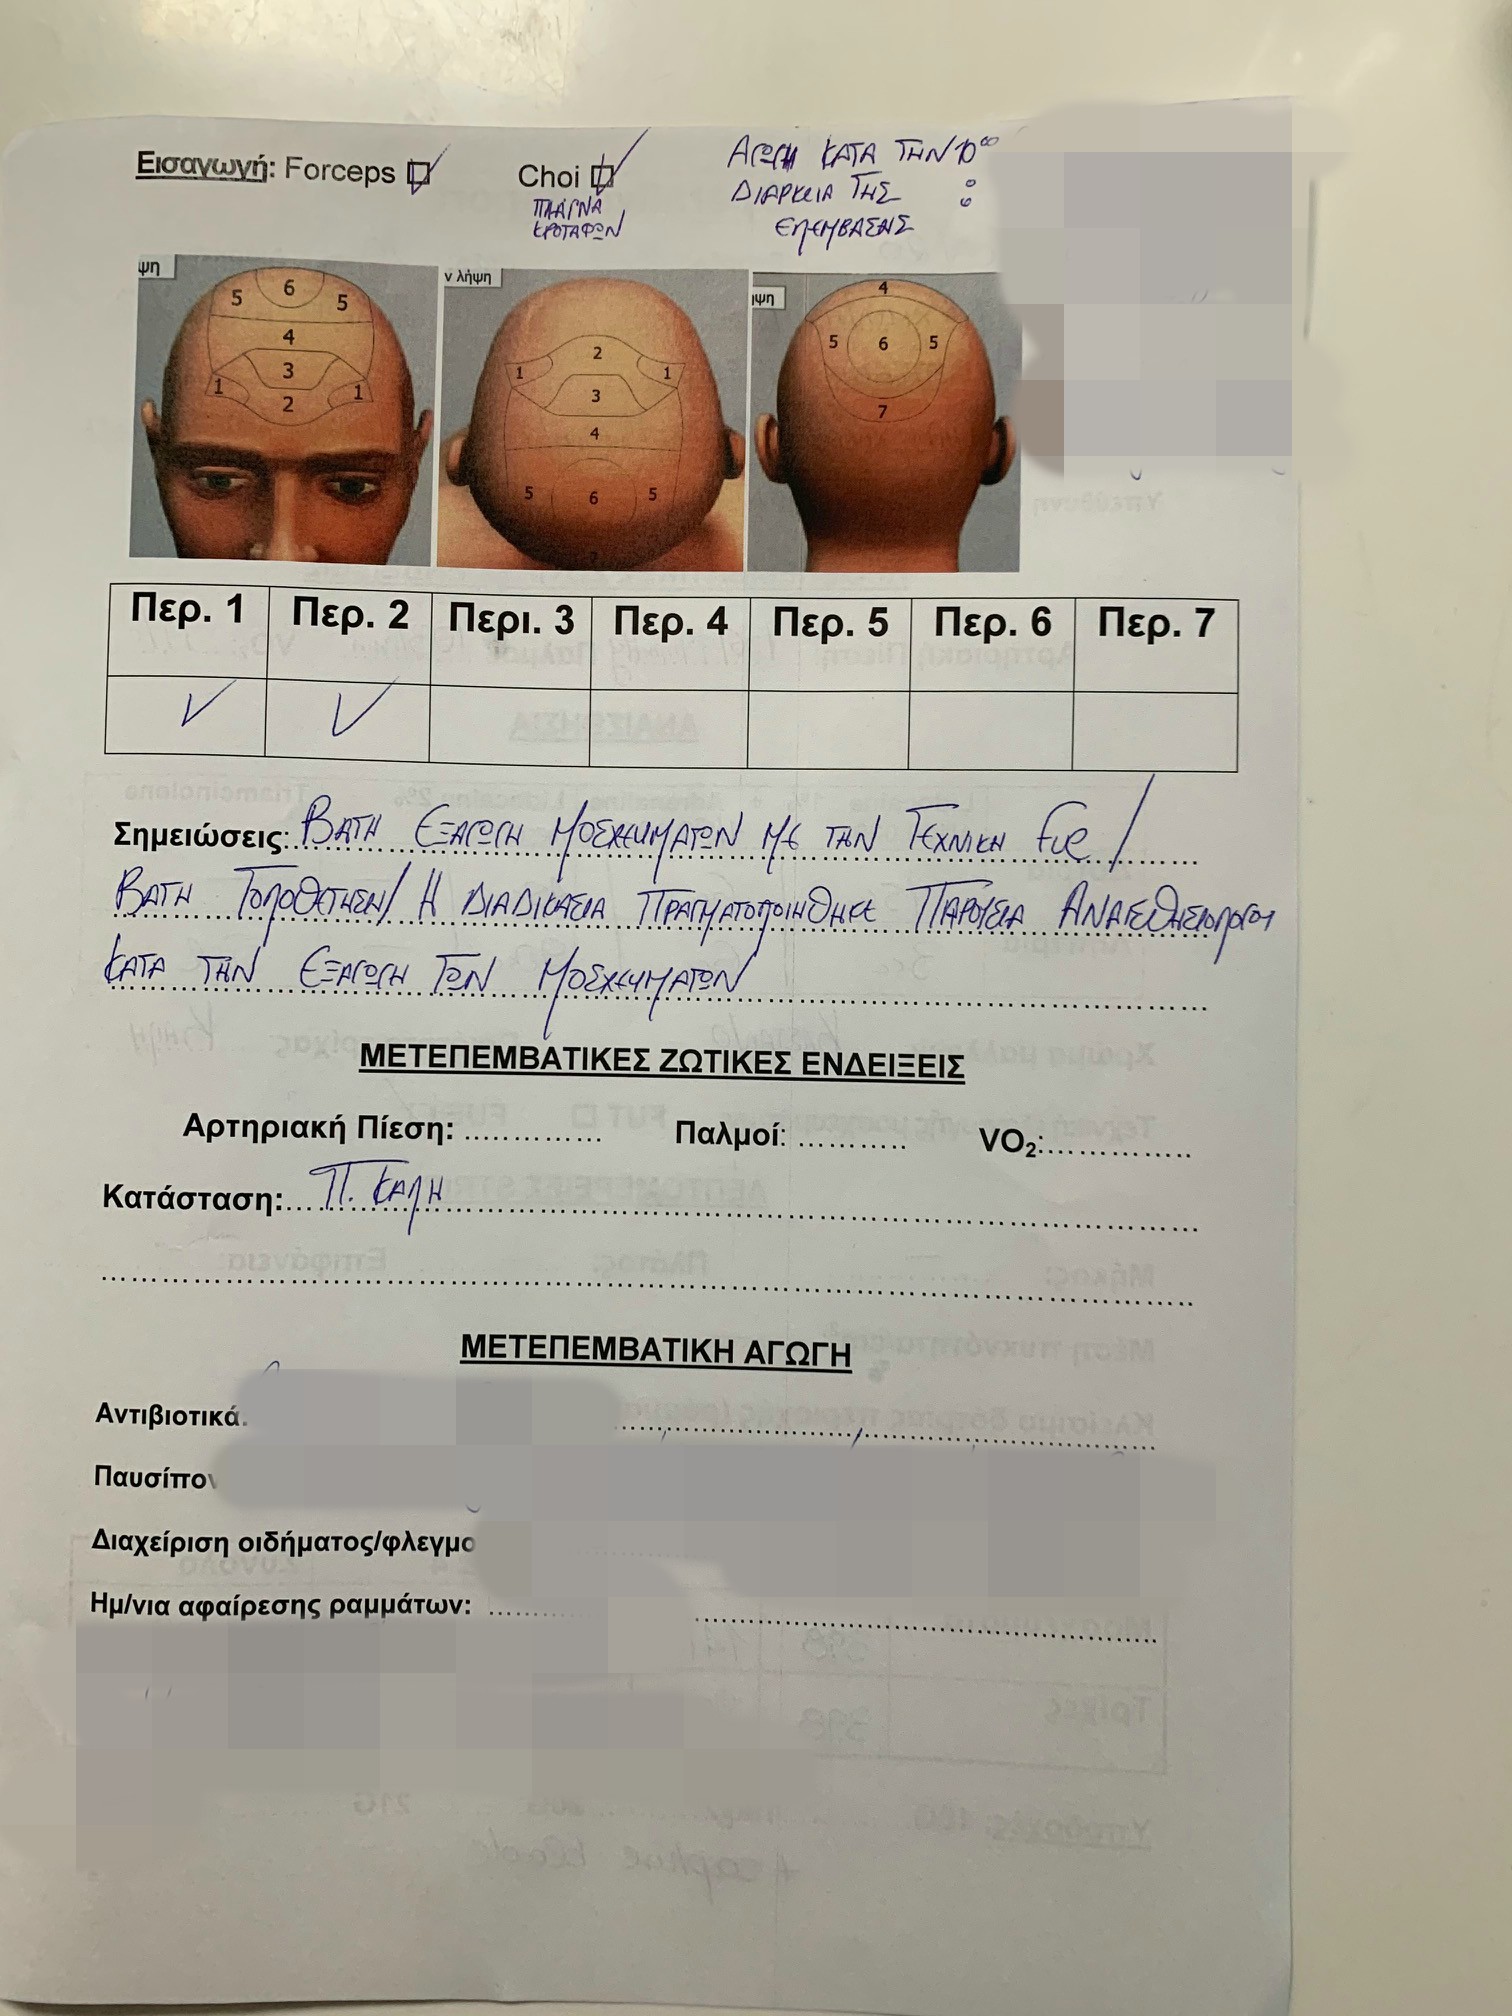 Εισαγωγή: Forceps Choi
ΠΛΑΓΙΝΑ
ΚΡΟΤΑΦΩΝ
ΑΓΩΓΗ ΚΑΤΑ ΤΗΝ 10⁰⁰
ΔΙΑΡΚΕΙΑ ΤΗΣ :
ΕΠΕΜΒΑΣΗΣ
ψη
ν λήψη
ιψη
5 6 5
4
3
1 1
2
2
1 1
3
4
5 6 5
4
5 6 5
7
Περ. 1 Περ. 2 Περι. 3 Περ. 4 Περ. 5 Περ. 6 Περ. 7
Σημειώσεις: ΒΑΤΗ ΕΞΑΓΩΓΗ ΜΟΣΧΕΥΜΑΤΩΝ ΜΕ ΤΗΝ ΤΕΧΝΙΚΗ FUE /
ΒΑΤΗ ΤΟΠΟΘΕΤΗΣΗ / Η ΔΙΑΔΙΚΑΣΙΑ ΠΡΑΓΜΑΤΟΠΟΙΗΘΗΚΕ ΠΑΡΟΥΣΙΑ ΑΝΑΙΣΘΗΣΙΟΛΟΓΟΥ
ΚΑΤΑ ΤΗΝ ΕΞΑΓΩΓΗ ΤΩΝ ΜΟΣΧΕΥΜΑΤΩΝ
ΜΕΤΕΠΕΜΒΑΤΙΚΕΣ ΖΩΤΙΚΕΣ ΕΝΔΕΙΞΕΙΣ
Αρτηριακή Πίεση: Παλμοί: VO₂:
Κατάσταση: Π. ΚΑΛΗ
ΜΕΤΕΠΕΜΒΑΤΙΚΗ ΑΓΩΓΗ
Αντιβιοτικά
Παυσίπον
Διαχείριση οιδήματος/φλεγμο
Ημ/νια αφαίρεσης ραμμάτων: